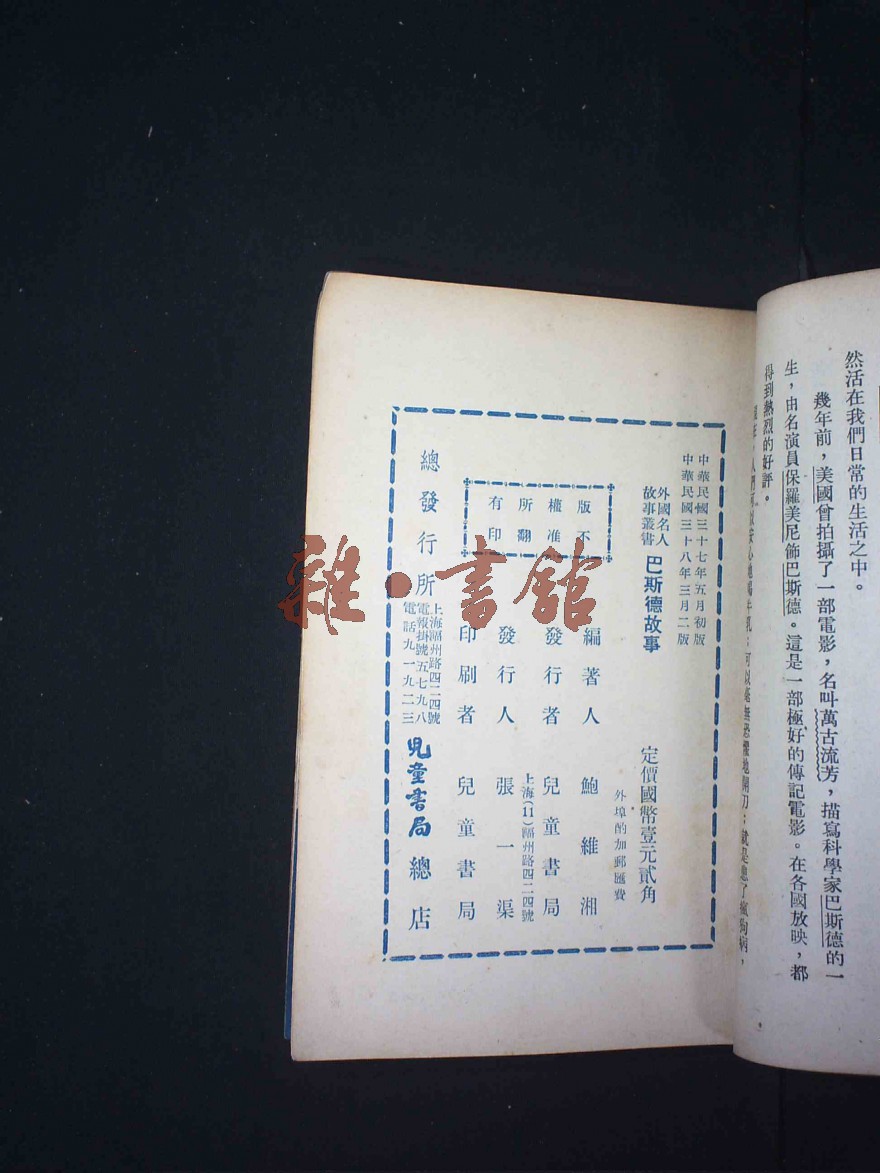 然活在我們日常的生活之中。
幾年前，美國曾拍攝了一部電影，名叫萬古流芳，描寫科學家巴斯德的一
生，由名演員保羅美尼飾巴斯德。這是一部極好的傳記電影。在各國放映，都
得到熱烈的好評。
人們可以安心地喝牛乳；可以毫無恐懼地開刀；就是患了瘋狗病，
中華民國三十七年五月初版
中華民國三十八年三月二版
外國名人
故事叢書
巴斯德故事
定價國幣壹元貳角
外埠酌加郵匯費
版權所有
不准翻印
編著人 鮑維湘
發行者 兒童書局
上海(11)福州路四二四號
發行人 張一渠
印刷者 兒童書局
總發行所
上海福州路四二四號
電報掛號五七九八
電話九一九二三
兒童書局總店
雜·書館